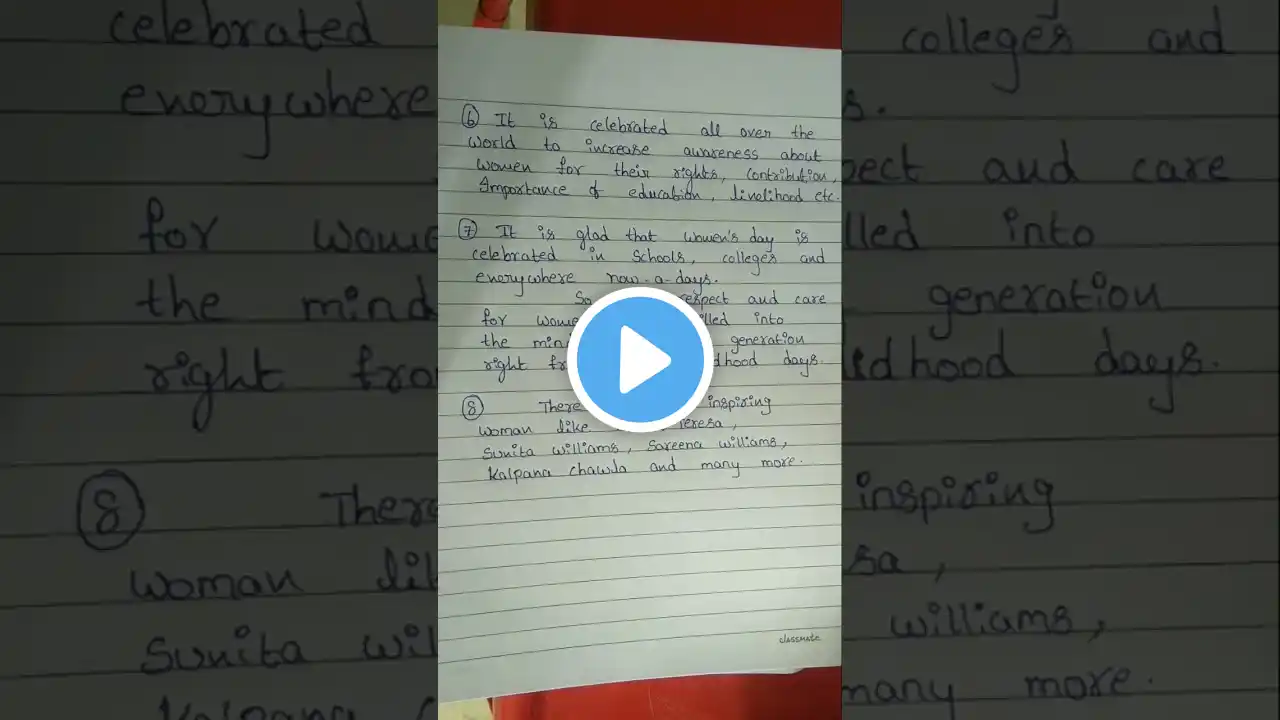 ⑥ It is celebrated all over the
world to increase awareness about
women for their rights, contribution,
Importance of education, livelihood etc.
⑦ It is glad that women's day is
celebrated in schools, colleges and
everywhere now-a-days.
So respect and care
for into
the generation
right days.
⑧ There inspiring
woman like Teresa,
Sunita williams, Sareena williams,
Kalpana chawla and many more.
classmate